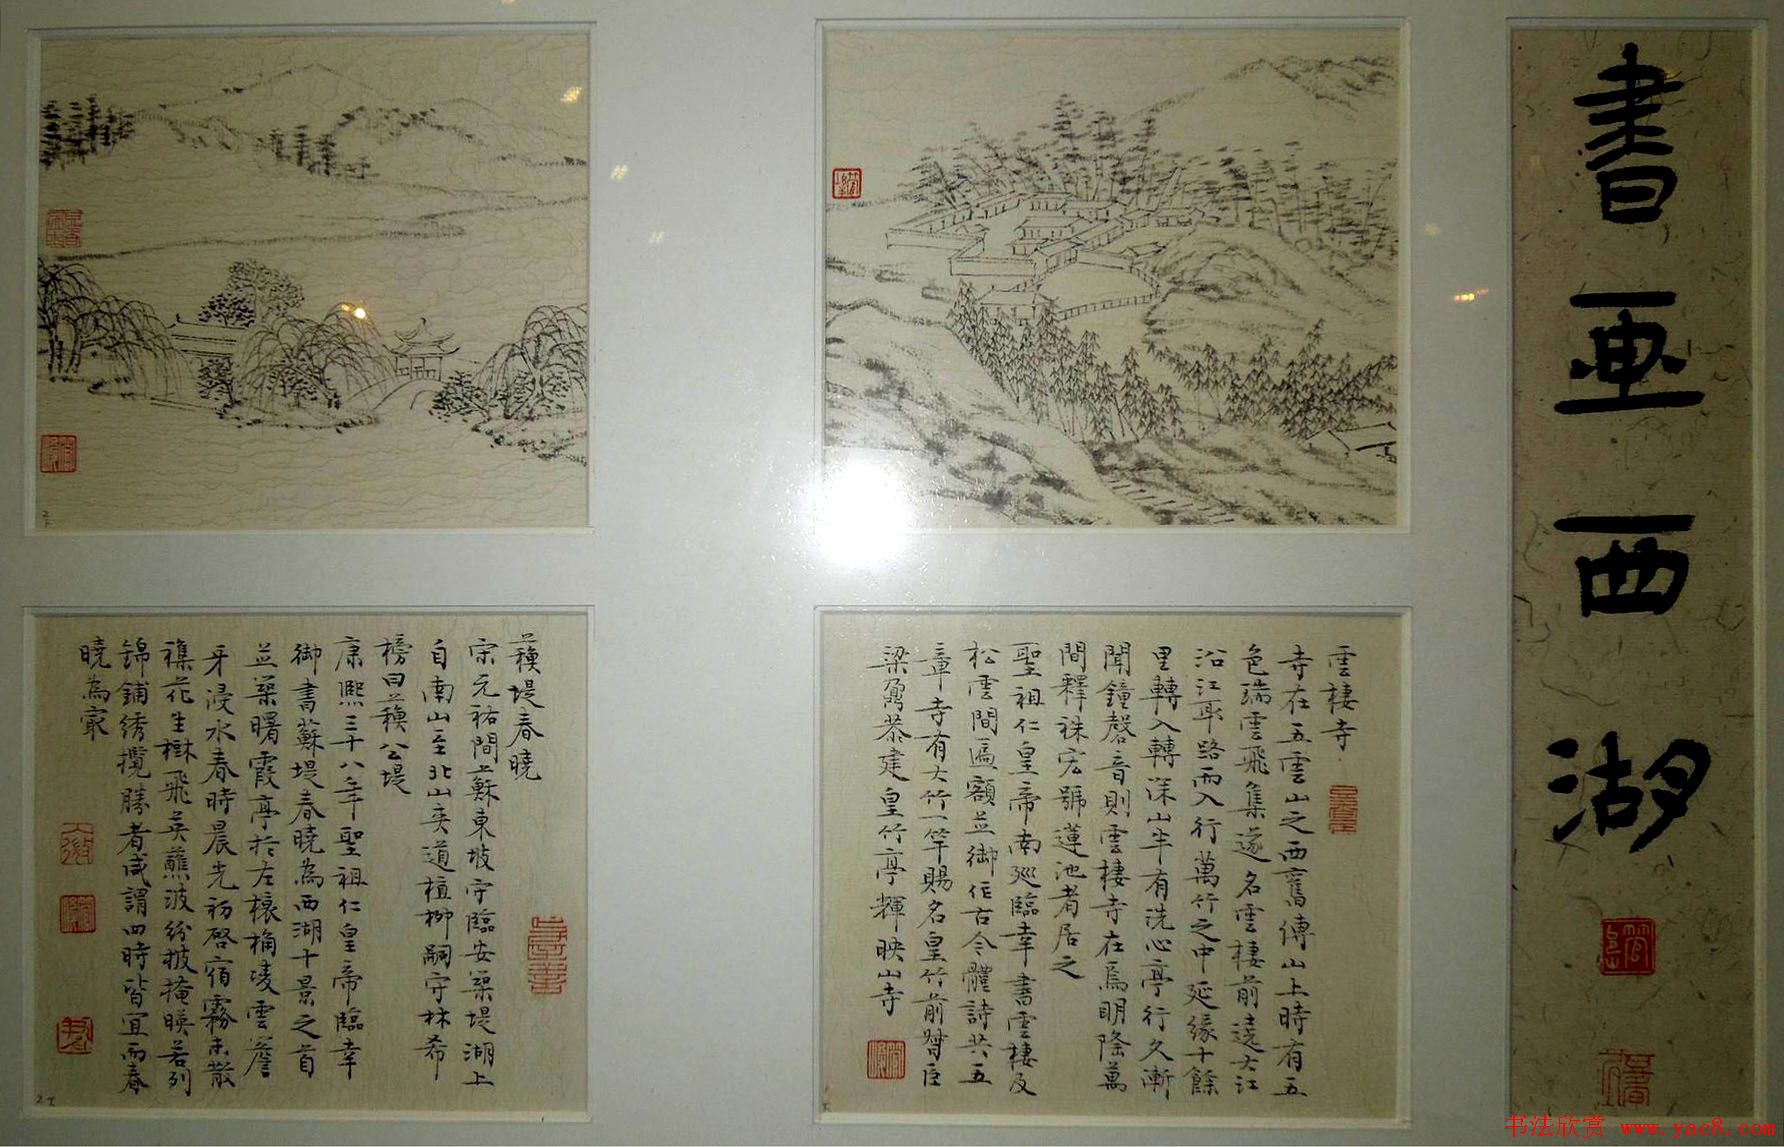 書画西湖
雲棲寺
寺在五雲山之西舊傳山上時有五
色瑞雲飛集遂名雲棲前遶大江
沿江取路而入行萬竹之中延緣十餘
里轉入轉深山半有洗心亭行久漸
聞鐘磬音則雲棲寺在焉明隆萬
間釋袾宏號蓮池者居之
聖祖仁皇帝南巡臨幸書雲棲及
松雲間匾額並御作古今體詩共五
章寺有大竹一竿賜名皇竹前督臣
梁鼐恭建皇竹亭輝映山寺
蘇堤春曉
宋元祐間蘇東坡守臨安築堤湖上
自南山至北山夾道植柳嗣守林希
榜曰蘇公堤
康熙三十八年聖祖仁皇帝臨幸
御書蘇堤春曉為西湖十景之首
並築曙霞亭於左榱桷凌雲簷
牙浸水春時晨光初啓宿霧未散
襍花生樹飛英蘸波紛披掩暎若列
錦鋪綉攬勝者咸謂四時皆宜而春
曉為最
书法欣赏 www.yac8.com